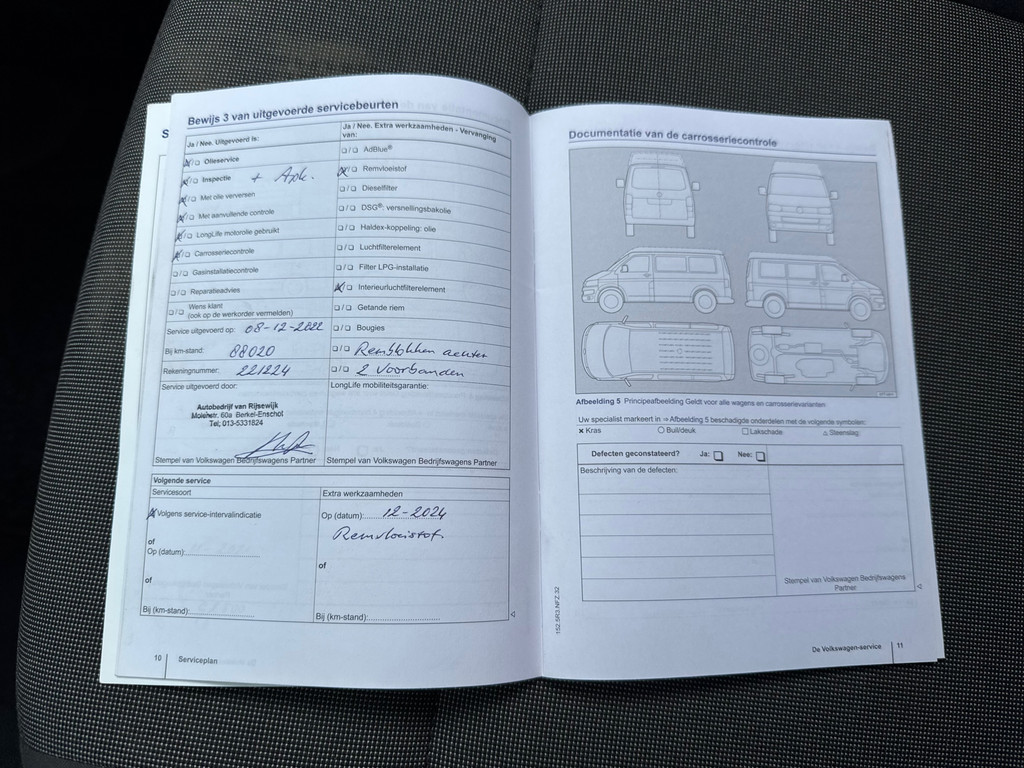 S
Bewijs 3 van uitgevoerde servicebeurten
Ja / Nee. Uitgevoerd is:
Olieservice
Inspectie + Apk.
Met olie verversen
Met aanvullende controle
LongLife motorolie gebruikt
Carrosseriecontrole
Gasinstallatiecontrole
Reparatieadvies
Wens klant
(ook op de werkorder vermelden)
Service uitgevoerd op: 08-12-2022
Bij km-stand: 88020
Rekeningnummer: 221224
Service uitgevoerd door:
Autobedrijf van Rijsewijk
60a Berkel-Enschot
Tel; 013-5331824
Stempel van Volkswagen Bedrijfswagens Partner
Ja / Nee. Extra werkzaamheden - Vervanging
van:
AdBlue®
Remvloeistof
Dieselfilter
DSG®: versnellingsbakolie
Haldex-koppeling: olie
Luchtfilterelement
Filter LPG-installatie
Interieurluchtfilterelement
Getande riem
Bougies
Remblokken achter
2 voorbanden
LongLife mobiliteitsgarantie:
Stempel van Volkswagen Bedrijfswagens Partner
Volgende service
Servicesoort
Volgens service-intervalindicatie
of
Op (datum):
of
Bij (km-stand):
Extra werkzaamheden
Op (datum): 12-2024
Remvloeistof
of
Bij (km-stand):
10 Serviceplan
Documentatie van de carrosseriecontrole
Afbeelding 5 Principeafbeelding Geldt voor alle wagens en carrosserievarianten
Uw specialist markeert in ⇒ Afbeelding 5 beschadigde onderdelen met de volgende symbolen:
× Kras ○ Buil/deuk □ Lakschade △ Steenslag
Defecten geconstateerd? Ja: Nee:
Beschrijving van de defecten:
Stempel van Volkswagen Bedrijfswagens
Partner
152.5R3.NFZ.32
De Volkswagen-service 11